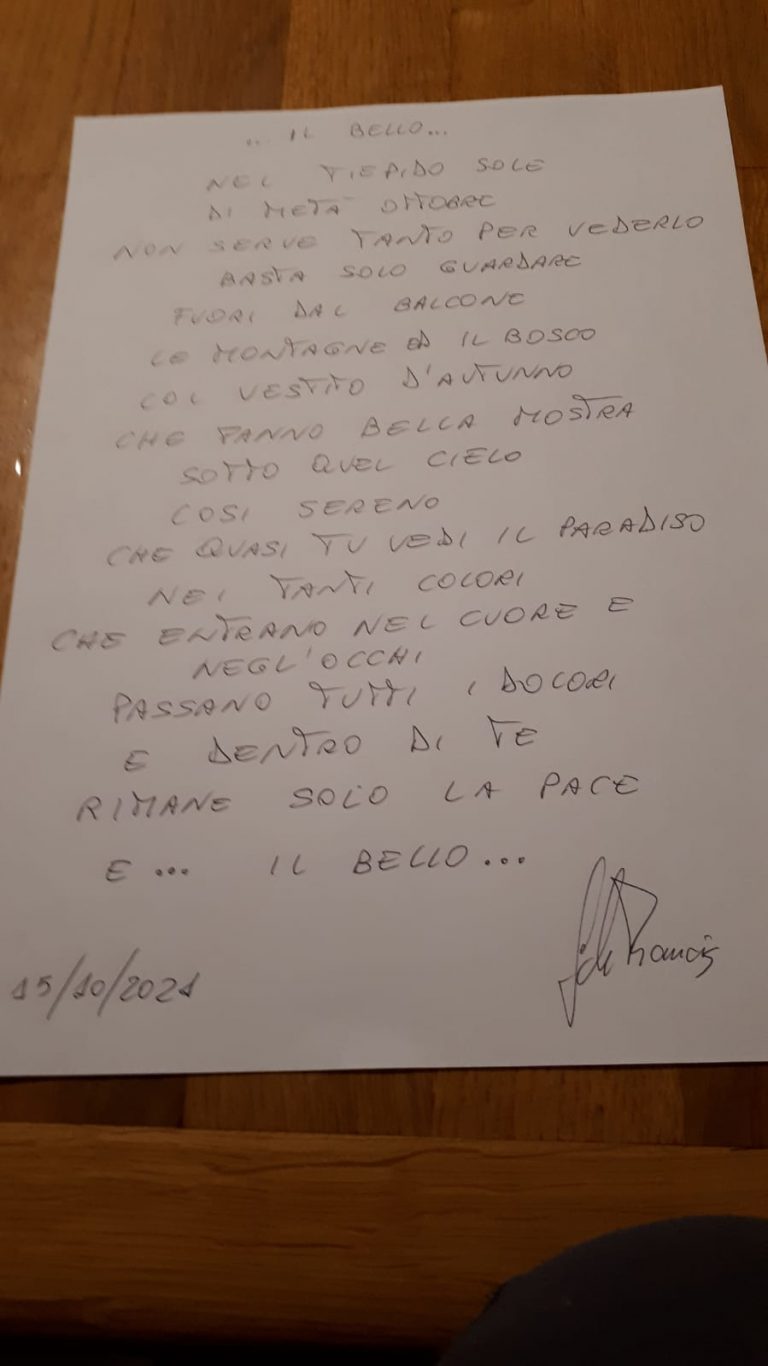 ... IL BELLO...
NEL TIEPIDO SOLE
DI METÀ OTTOBRE
NON SERVE TANTO PER VEDERLO
BASTA SOLO GUARDARE
FUORI DAL BALCONE
LE MONTAGNE ED IL BOSCO
COL VESTITO D'AUTUNNO
CHE FANNO BELLA MOSTRA
SOTTO QUEL CIELO
COSI SERENO
CHE QUASI TU VEDI IL PARADISO
NEI TANTI COLORI
CHE ENTRANO NEL CUORE E
NEGL'OCCHI
PASSANO TUTTI I DOLORI
E DENTRO DI TE
RIMANE SOLO LA PACE
E ... IL BELLO...
15/10/2021